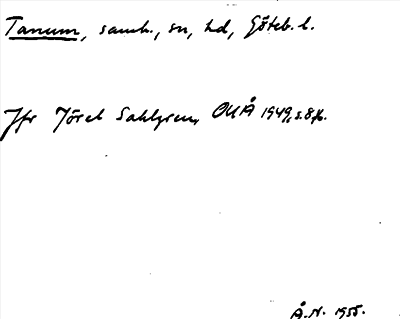 Tanum, samh., sn, hd, Göteb. l.
Jfr Jöran Sahlgren, OUÅ 1949, s. 8 f.
Å. N. 1955.